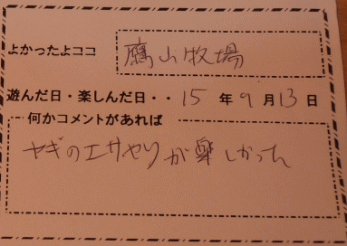 よかったよココ 鷹山牧場
遊んだ日・楽しんだ日・・15年9月13日
何かコメントがあれば
ヤギのエサやりが楽しかった